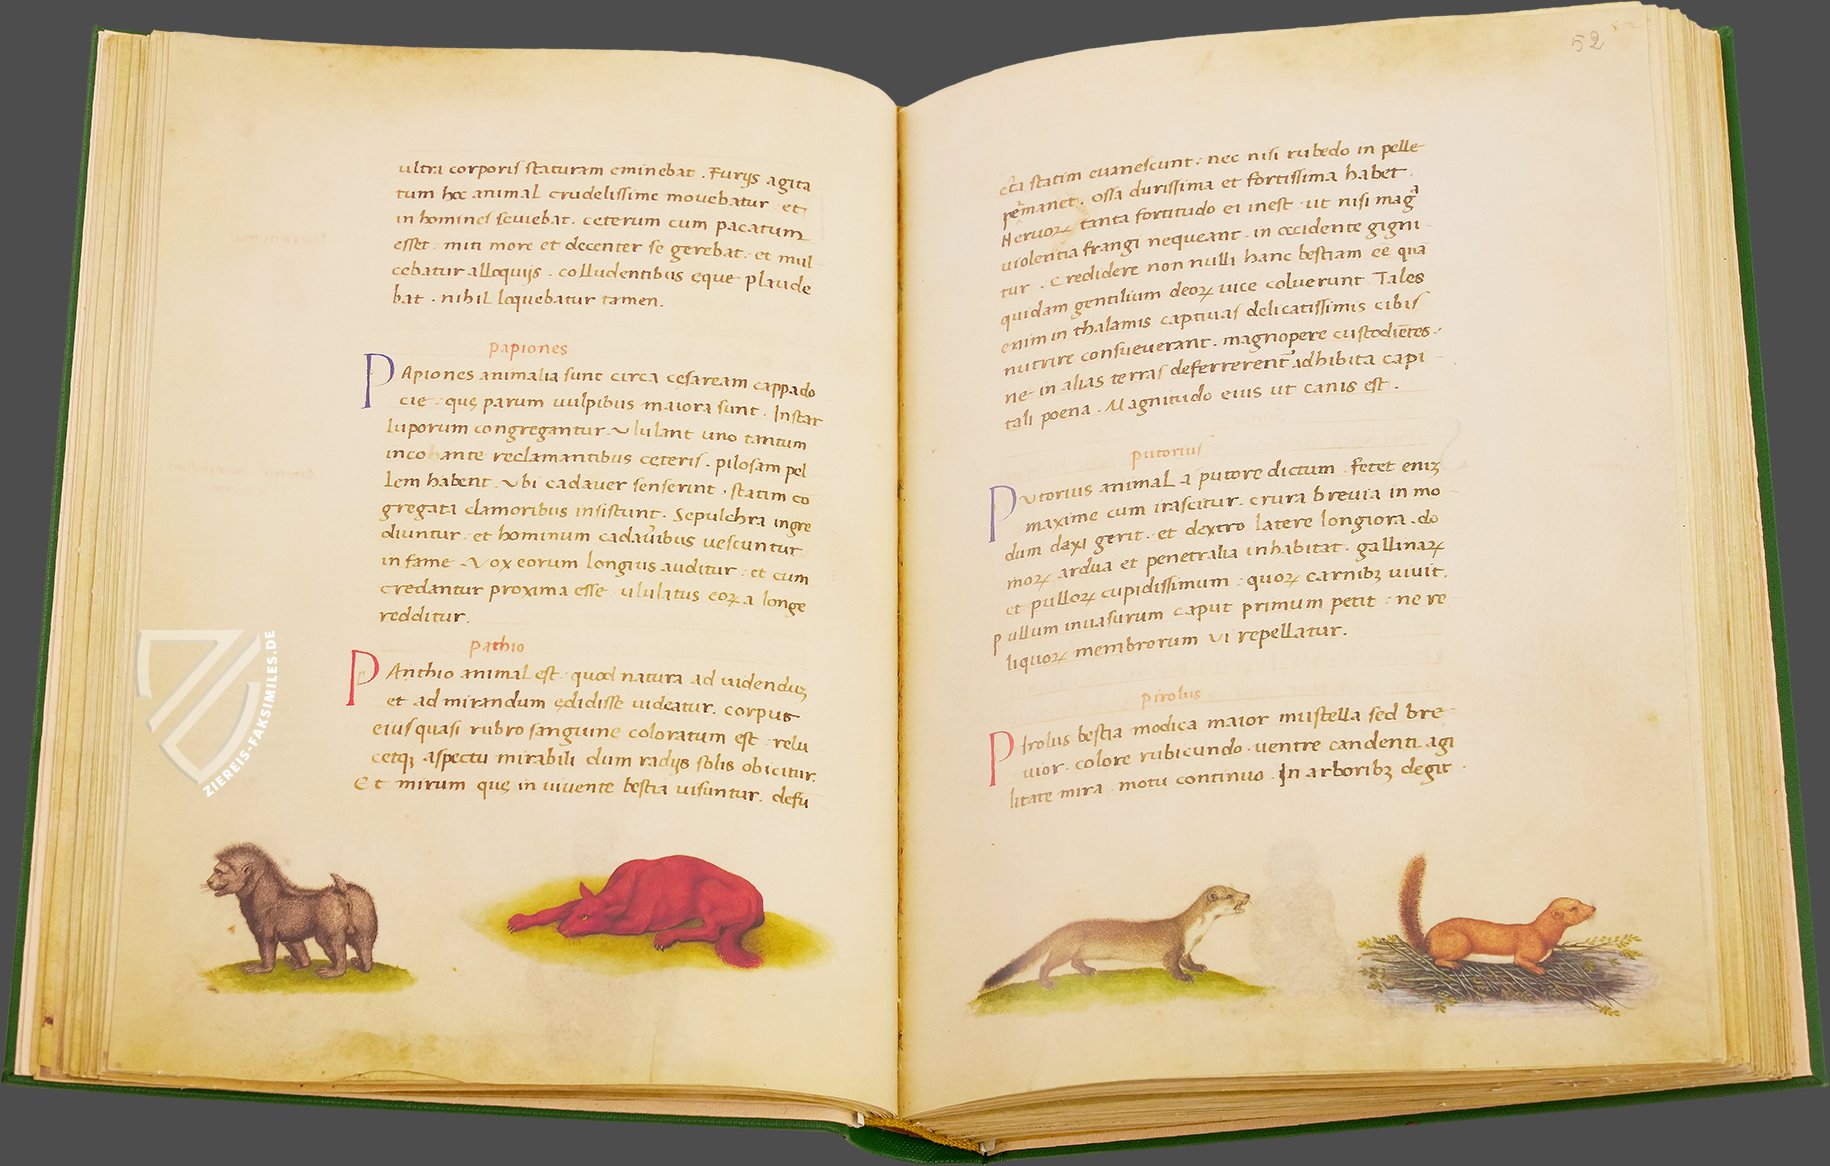 ultra corporis staturam eminebat. Furijs agita
tum hoc animal crudelissime mouebatur et
in homines seuiebat. ceterum cum pacatum
esset miti more et decenter se gerebat. et mul
cebatur alloquijs. colludentibus eque plaude
bat. nihil loquebatur tamen.
Papiones
PApiones animalia sunt circa cesaream cappado
cie. quę parum uulpibus maiora sunt. Instar
luporum congregantur. Vlulant uno tantum
ante reclamantibus ceteris. pilosam pel
lem habent. Vbi cadauer senserint. statim co
gregata clamoribus insistunt. Sepulchra ingre
diuntur. et hominum cadaueribus uescuntur
in fame. Vox eorum longius auditur. et cum
credantur proxima esse. ululatus eoꝝ a longe
redditur.
Pathio
PAnthio animal est. quod natura ad uidenduꝫ
et ad mirandum ędidisse uideatur. corpus
eius quasi rubro sanguine coloratum est. relu
cetqꝫ aspectu mirabili dum radijs solis obicitur.
Et mirum quę in uiuente bestia uisuntur. defu
52
cta statim euanescunt. nec nisi rubedo in pelle
remanet. Ossa durissima et fortissima habet.
Neruoꝝ tanta fortitudo ei inest ut nisi magᵃ
uiolentia frangi nequeant. in occidente gigni
tur. Credidere non nulli hanc bestiam eē quā
quidam gentilium deoꝝ uice coluerunt Tales
enim in thalamis captiuas delicatissimis cibis
nutrire consueuerant. magnopere custodiētes.
ne in alias terras deferrerent adhibita capi
tali poena. Magnitudo eius ut canis est.
Putorius
PVtorius animal a putore dictum. Fetet eniꝫ
maxime cum irascitur. crura breuia in mo
dum daxi gerit. et dextro latere longiora. do
moꝝ ardua et penetralia inhabitat. gallinaꝝ
et pulloꝝ cupidissimum: quoꝝ carnibꝫ uiuit.
Pullum inuasurum caput primum petit: ne re
liquoꝝ membrorum ui repellatur.
Pirolus
PIrolus bestia modica maior mustella sed bre
uior. colore rubicundo. uentre candenti. agi
litate mira. motu continuo. In arboribꝫ degit.
ZIEREIS-FAKSIMILES.DE